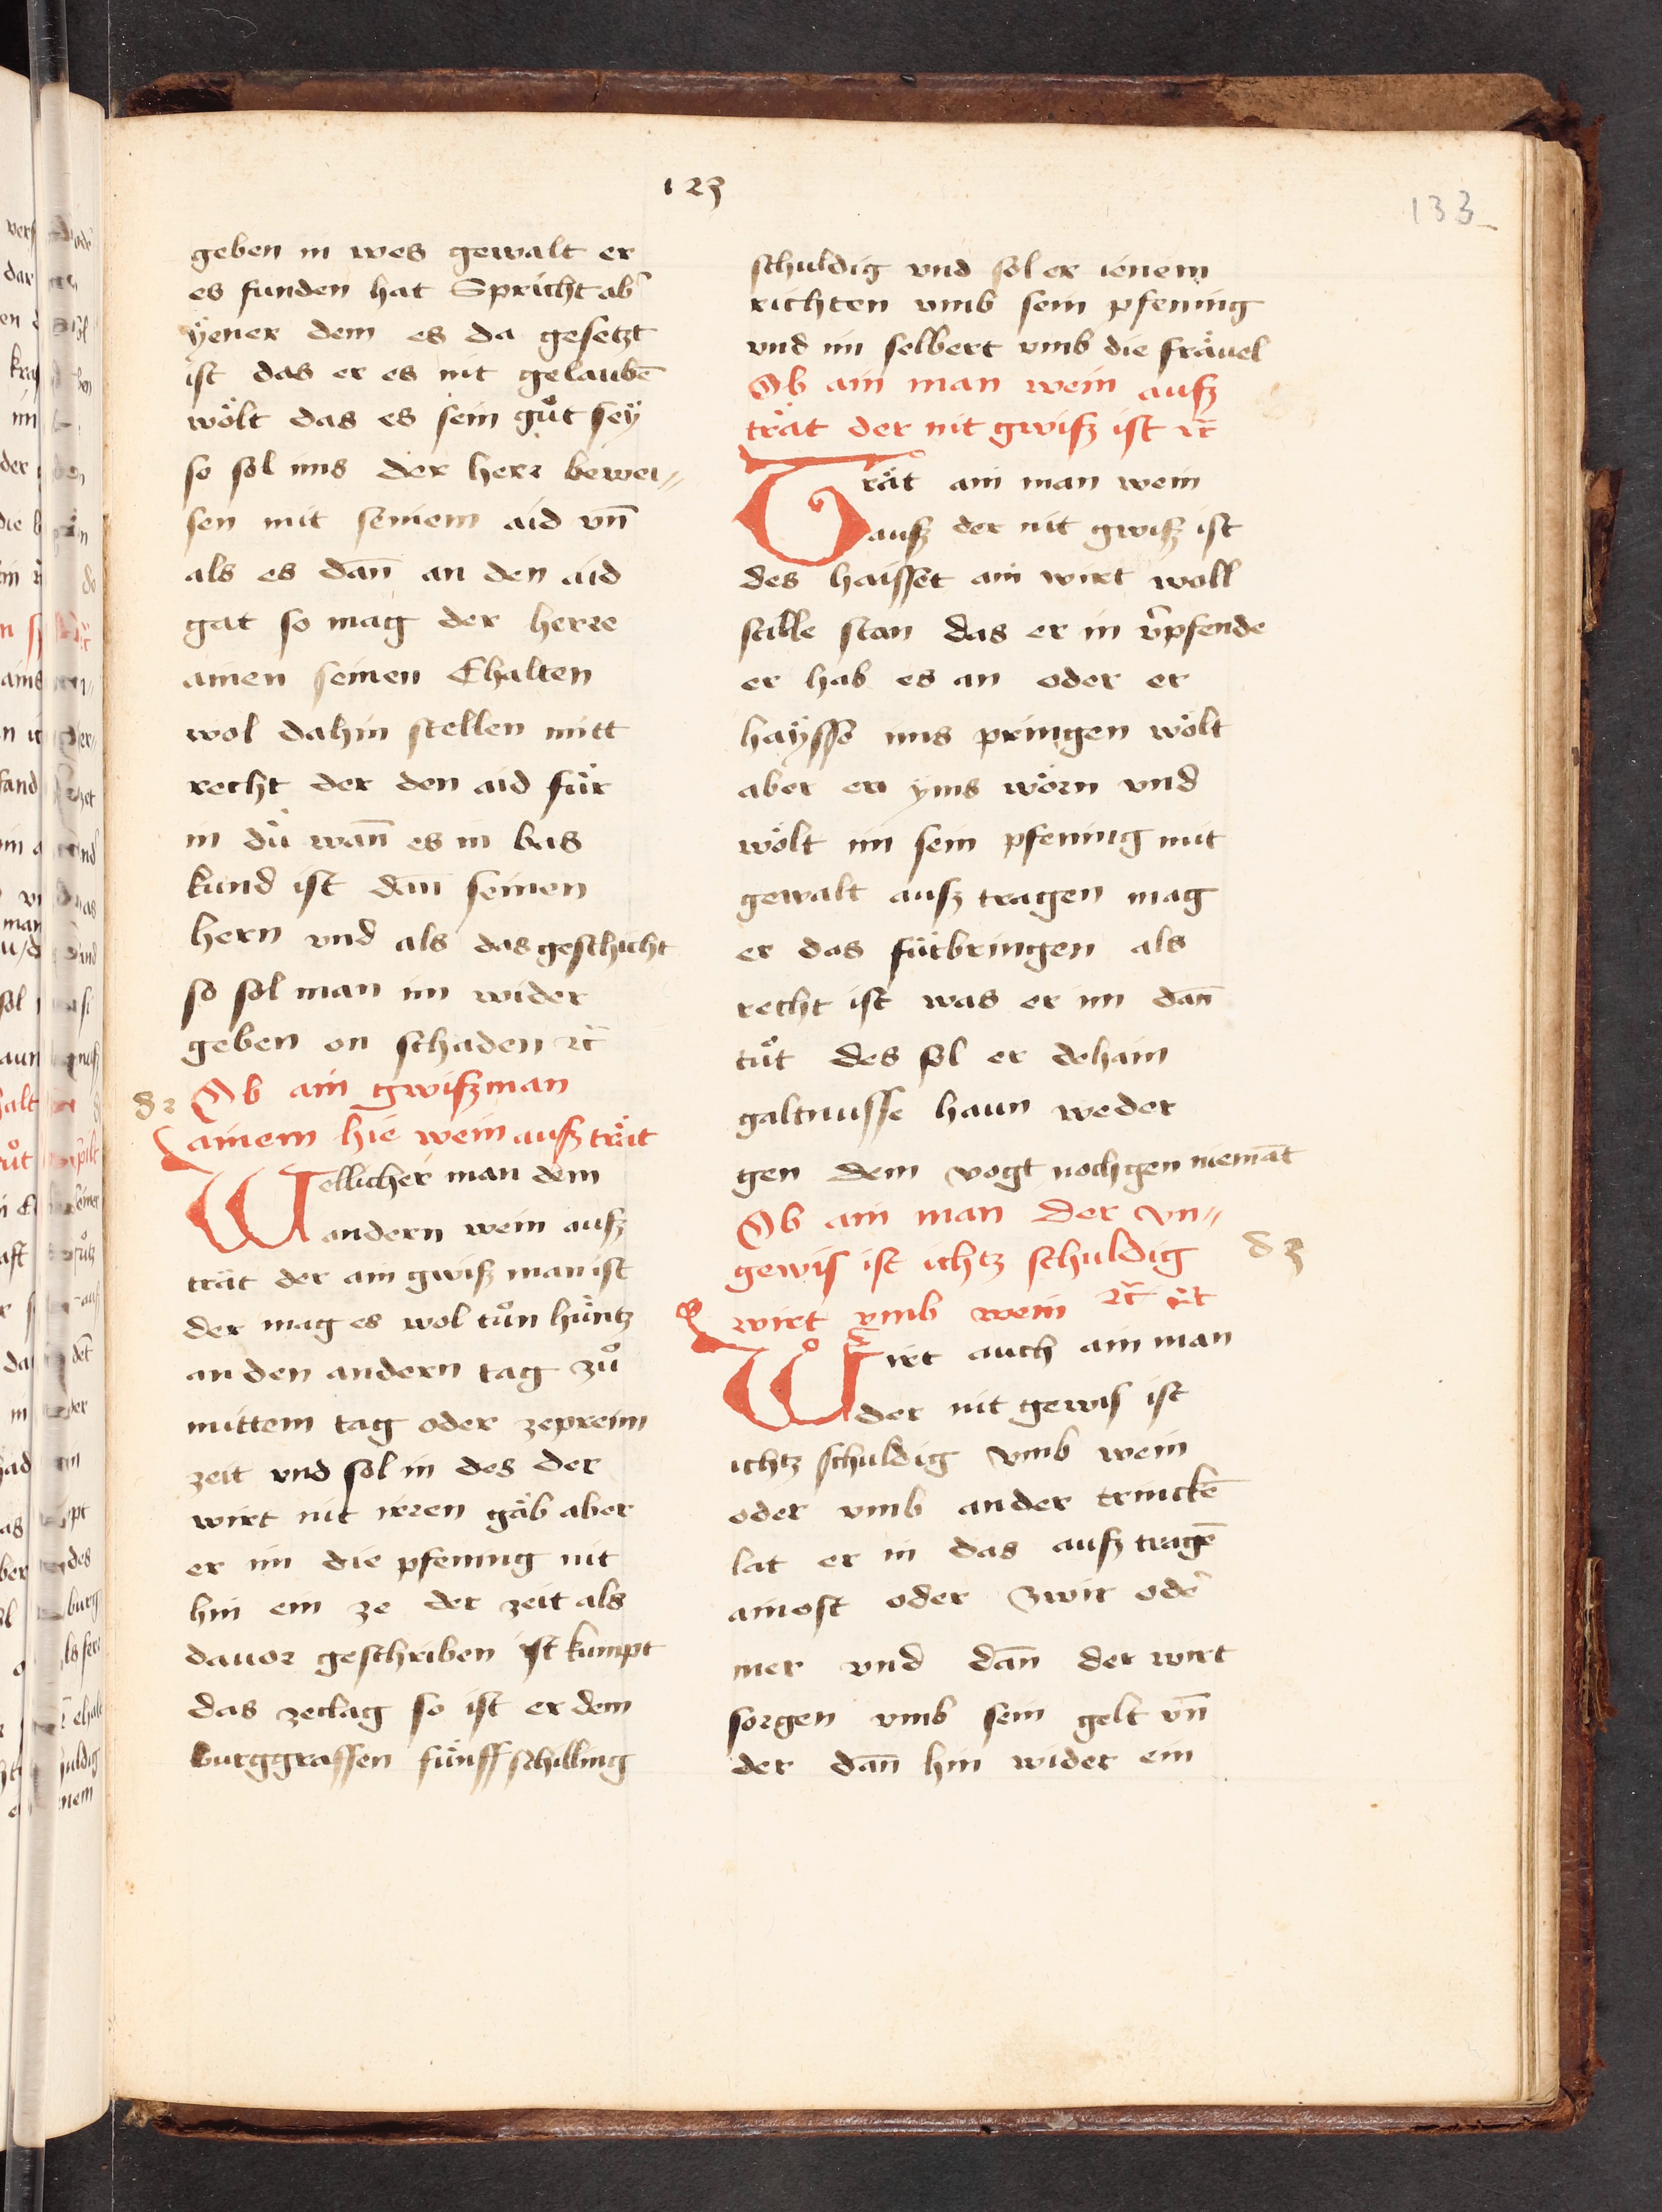 123
133
geben in wes gewalt er
es funden hat Spricht ab̾
ÿener dem es da gesetzt
ist das er es nit gelaubē
wo̎lt das es sein gůt seÿ
so sol ims der herr bewei〃
sen mit seinem aid vn̄
als es dan̄ an den aid
gat so mag der herre
ainen seinen Ehalten
wol dahin stellen mitt
recht der den aid für
in du̎ wan̄ es in bas
kund ist dan̄ seinen
hern vnd als das geschicht
so sol man im wider
geben on schaden ⁊c̄
Ob ain gwiſz man
ainem hie wein auſz trät
Wellicher man dem
andern wein auſz
trät der ain gwiſz man ist
der mag es wol tůn hüntz
an den andern tag zů
mittem tag oder zepreim
zeit vnd sol in des der
wirt nit irren gäb aber
er im die pfening nit
hin ein ze der zeit als
dauor geschriben ist kumpt
das zeclag so ist er dem
burggraffen fünff schilling
schuldig vnd sol er ienem
richten vmb sein pfening
vnd im selbert vmb die fräuel
Ob ain man wein auſz
trät der nit gwiſz ist ⁊c̄
Trät ain man wein
auſz der nit gwiſz ist
des haisset ain wirt woll
stille stan das er in v̾pfende
er hab es an oder er
haÿsse ims pringen wölt
aber er ÿms wörn vnd
wölt im sein pfening mit
gewalt auſz tragen mag
er das fürbringen als
recht ist was er im dan̄
tůt des sol er dehain
galtnusse haun weder
gen dem vogt noch gen niemāt
Ob ain man der vn〃
gewis ist ichtz schuldig
wirt vmb wein ⁊c̄ ⁊c̄
Wirt auch ain man
der nit gewis ist
ichtz schuldig vmb wein
oder vmb ander trinckē
lat er in das auſz tragē
ainost oder zwir ode̾
mer vnd dan̄ der wirt
sorgen vmb sein gelt vn̄
der dan̄ hin wider ein